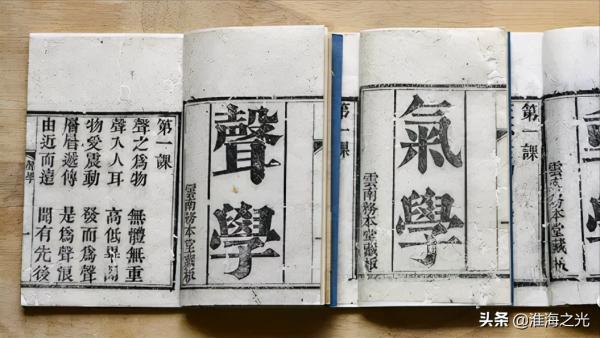 第一課
聲之爲物 無體無重
聲入人耳 高低異
物受震動 發而爲聲
層層遞傳 是爲聲浪
由近而遠 聞有先後
聲學
聲學
雲南務本堂藏板
第一課
氣學
雲南務本堂藏板
第一課
雲南務本堂藏板
头条 @淮海之光